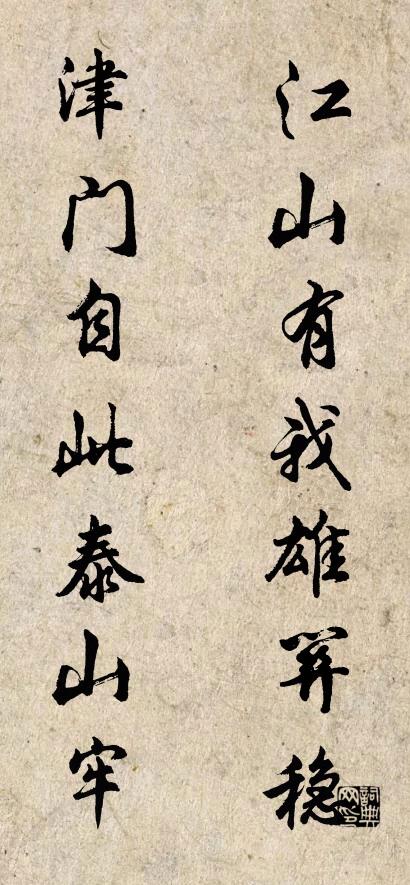 江山有我雄关稳
津门自此泰山牢
詞典网印